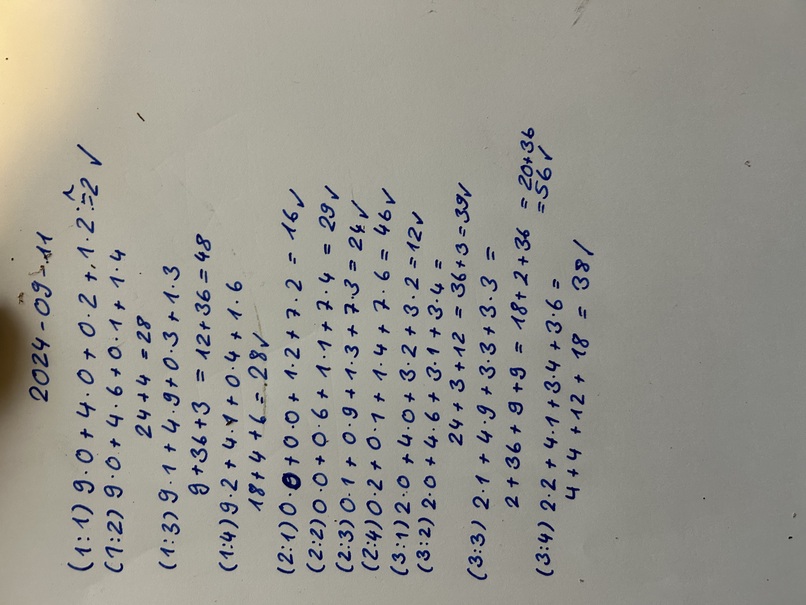 2024-09-11
(1:1) 9·0 + 4·0 + 0·2 + 1·2 = 2 ✓
(1:2) 9·0 + 4·6 + 0·1 + 1·4
24+4 = 28
(1:3) 9·1 + 4·9 + 0·3 + 1·3
9+36+3 = 12+36 = 48
(1:4) 9·2 + 4·1 + 0·4 + 1·6
18+4+6 = 28 ✓
(2:1) 0·0 + 0·0 + 1·2 + 7·2 = 16 ✓
(2:2) 0·0 + 0·6 + 1·1 + 7·4 = 29 ✓
(2:3) 0·1 + 0·9 + 1·3 + 7·3 = 24 ✓
(2:4) 0·2 + 0·1 + 1·4 + 7·6 = 46 ✓
(3:1) 2·0 + 4·0 + 3·2 + 3·2 = 12 ✓
(3:2) 2·0 + 4·6 + 3·1 + 3·4 =
24 + 3 + 12 = 36+3 = 39 ✓
(3:3) 2·1 + 4·9 + 3·3 + 3·3 =
2 + 36 + 9 + 9 = 18+2+36 = 20+36
= 56 ✓
(3:4) 2·2 + 4·1 + 3·4 + 3·6 =
4 + 4 + 12 + 18 = 38 ✓